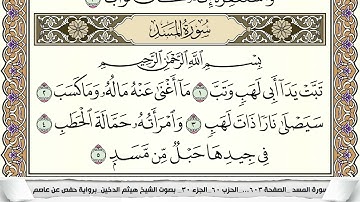 وَاسْتَغْفِرْهُ إِنَّهُ كَانَ تَوَّابًا
سُورَةُ المَسَدِ
بِسْمِ اللَّهِ الرَّحْمَٰنِ الرَّحِيمِ
تَبَّتْ يَدَا أَبِي لَهَبٍ وَتَبَّ ١ مَا أَغْنَىٰ عَنْهُ مَالُهُ وَمَا كَسَبَ ٢
سَيَصْلَىٰ نَارًا ذَاتَ لَهَبٍ ٣ وَامْرَأَتُهُ حَمَّالَةَ الْحَطَبِ ٤
فِي جِيدِهَا حَبْلٌ مِّن مَّسَدٍ ٥
سورة المسد _الصفحة ٦٠٣_...الحزب ٦٠_الجزء ٣٠_ بصوت الشيخ هيثم الدخين_برواية حفص عن عاصم